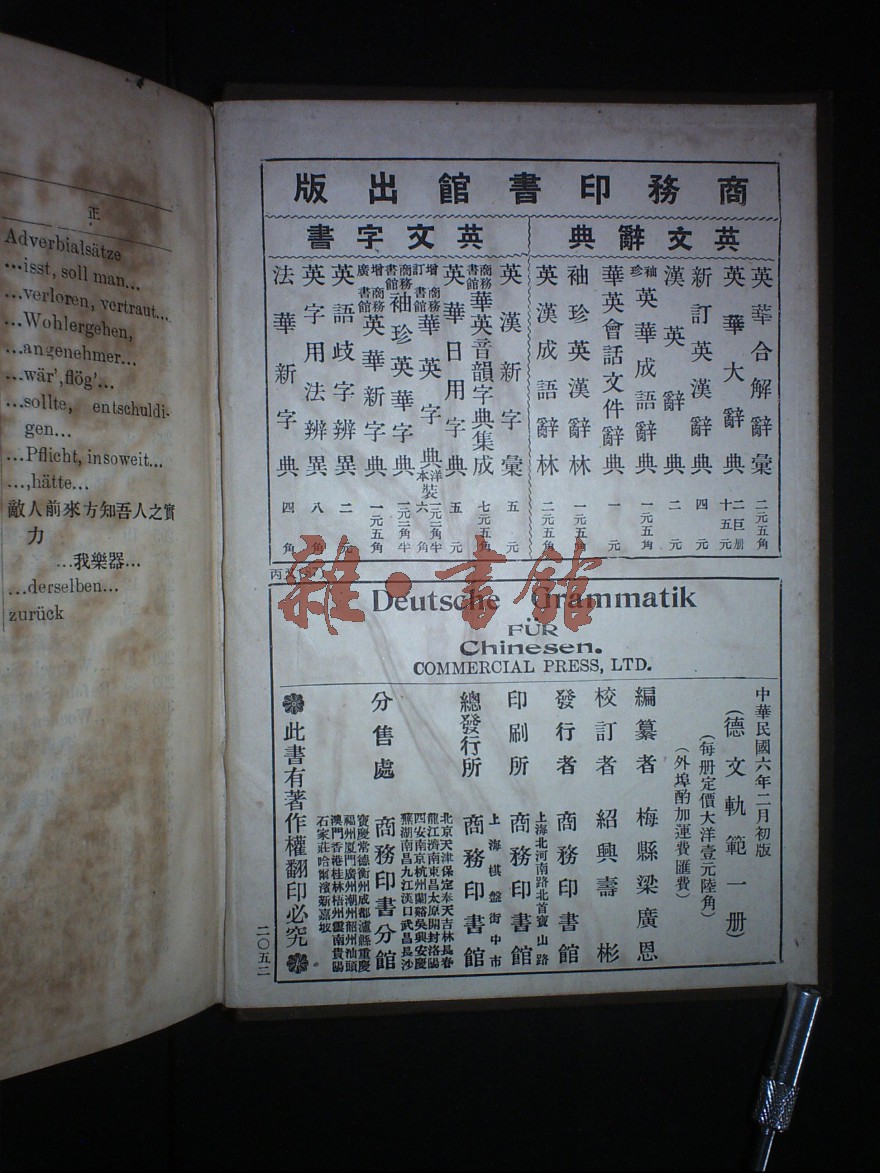 正
Adverbialsätze
...isst, soll man...
...verloren, vertraut...
...Wohlergehen,
...angenehmer...
...wär', flög'...
...sollte, entschuldi-
gen...
...Pflicht, insoweit...
...,hätte...
敵人前來方知吾人之實
力
...我樂器...
...derselben...
zurück
商務印書館出版
英文辭典
英華合解辭彙 二元五角
英華大辭典 二巨册 十五元
新訂英漢辭典 四元
漢英辭典 二元
袖珍英華成語辭典 一元五角
華英會話文件辭典 一元
袖珍英漢辭林 一元五角
英漢成語辭林 二元五角
英文字書
英漢新字彙 五元
商務書館華英音韻字典集成 七元五角
英華日用字典 五元
增訂商務書館華英字典 洋裝本 一元二角半 六角
商務書館袖珍英華字典 一元二角半
增廣商務書館英華新字典 一元五角
英語歧字辨異 二元
英字用法辨異 八角
法華新字典 四角
雜·書館
Deutsche Grammatik
FÜR
Chinesen.
COMMERCIAL PRESS, LTD.
中華民國六年二月初版
(德文軌範一册)
(每册定價大洋壹元陸角)
(外埠酌加運費匯費)
編纂者 梅縣梁廣恩
校訂者 紹興壽彬
發行者 商務印書館
上海北河南路北首寶山路
印刷所 商務印書館
上海棋盤街中市
總發行所 商務印書館
北京天津保定奉天吉林長春
龍江濟南東昌太原開封洛陽
西安南京杭州蘭谿吳興安慶
蕪湖南昌九江漢口武昌長沙
分售處 商務印書分館
寶慶常德衡州成都瀘縣重慶
福州厦門廣州潮州韶州汕頭
澳門香港桂林梧州雲南貴陽
石家莊哈爾濱新嘉坡
此書有著作權翻印必究
二〇五二